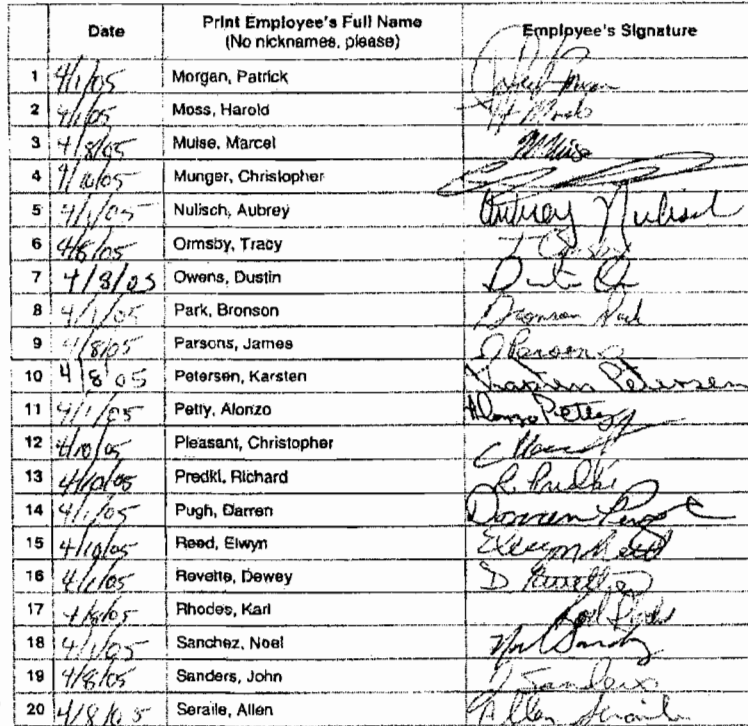 Date Print Employee's Full Name Employee's Signature
(No nicknames, please)
1 4/1/05 Morgan, Patrick
2 4/1/05 Moss, Harold H Moss
3 4/8/05 Muise, Marcel M Muise
4 4/10/05 Munger, Christopher
5 4/1/05 Nulisch, Aubrey Aubrey Nulisch
6 4/8/05 Ormsby, Tracy
7 4/8/05 Owens, Dustin
8 4/1/05 Park, Bronson Bronson Park
9 4/8/05 Parsons, James J Parsons
10 4/8/05 Petersen, Karsten Karsten Petersen
11 4/1/05 Petty, Alonzo Alonzo Petty
12 4/10/05 Pleasant, Christopher
13 4/10/05 Predki, Richard R. Predki
14 4/1/05 Pugh, Darren
15 4/10/05 Reed, Elwyn Elwyn Reed
16 4/1/05 Revette, Dewey D Revette
17 4/8/05 Rhodes, Karl Karl Rhodes
18 4/1/05 Sanchez, Noel
19 4/8/05 Sanders, John J Sanders
20 4/8/05 Seraile, Allen Allen Seraile